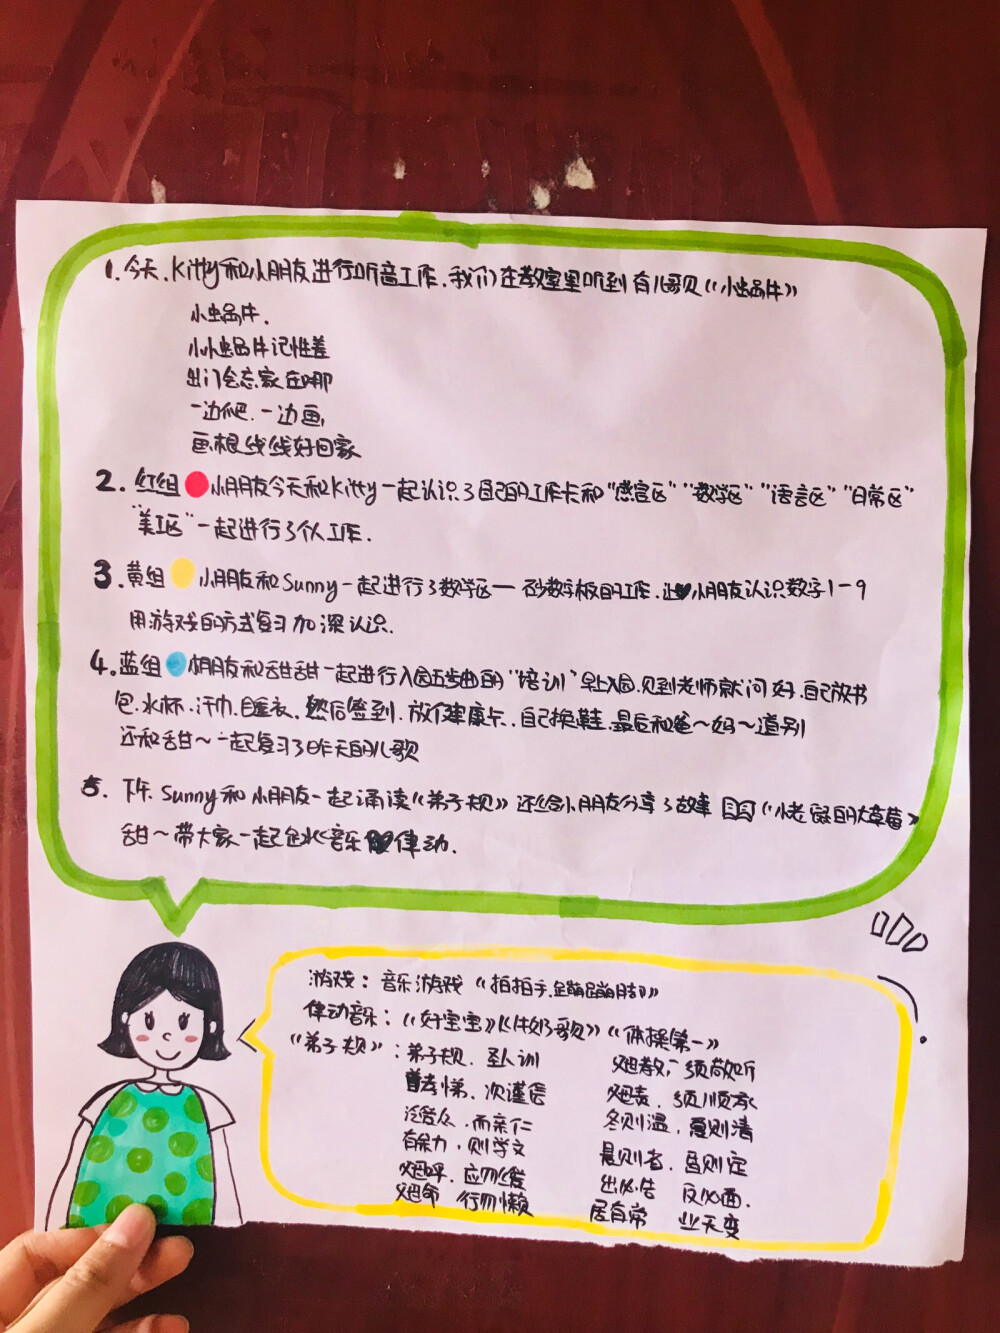 1. 今天、Kitty和小朋友进行听音工作、我们在教室里听到有儿歌《小蜗牛》
小蜗牛、
小小蜗牛记性差
出门会忘家在哪
一边爬、一边画,
画根线线好回家
2. 红组 小朋友今天和Kitty一起认识了自己的工作卡和"感官区""数学区""语言区""日常区"
"美工区"一起进行了个人工作.
3. 黄组 小朋友和Sunny一起进行了数学区一砂数字板的工作.让小朋友认识数字1-9
用游戏的方式复习加深认识.
4. 蓝组 小朋友和甜甜一起进行入园五步曲的"培训"早上入园、见到老师就问好、自己放书
包、水杯、汗巾、睡衣、然后签到、放健康卡、自己换鞋、最后和爸~妈~道别
还和甜~一起复习了昨天的儿歌
5. 下午、Sunny和小朋友一起诵读《弟子规》还给小朋友分享了故事《小老鼠的大草莓》
甜~带大家一起 音乐律动.
游戏: 音乐游戏《拍拍手,蹦蹦脚》
律动音乐:《好宝宝》《牛奶歌》《体操第一》
《弟子规》: 弟子规、圣人训 父母教,须敬听
首孝悌、次谨信 父母责、须顺承
泛爱众、而亲仁 冬则温、夏则清
有余力,则学文 晨则省、昏则定
父母呼、应勿缓 出必告 反必面.
父母命 行勿懒 居有常 业无变